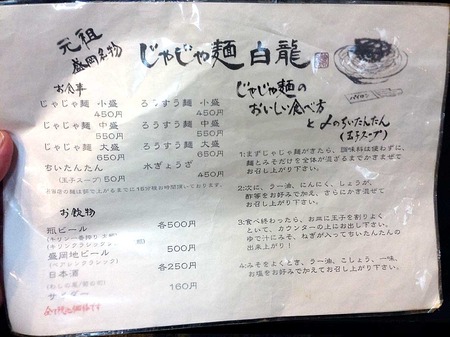 元祖
盛岡名物
じゃじゃ麺 白龍
お食事
じゃじゃ麺 小盛 ろうすう麺 小盛
450円 450円
じゃじゃ麺 中盛 ろうすう麺 中盛
550円 550円
じゃじゃ麺 大盛 ろうすう麺 大盛
650円 650円
ちいたんたん 水ぎょうざ
(玉子スープ) 50円 450円
お飲物
瓶ビール 各500円
盛岡地ビール 500円
(ベアレンクラシック)
日本酒 各250円
サイダー 160円
じゃじゃ麺の
おいしい食べ方
とそのちいたんたん
(玉子スープ)
1:まずじゃじゃ麺がきたら、調味料は使わずに、
麺とみそだけを全体が混ざるまでかきまぜて
お召し上がり下さい。
2:次に、ラー油、にんにく、しょうが、
酢等をお好みで加え、さらにかき混ぜて
お召し上がり下さい。
3:食べ終わったら、お皿に玉子を割りよく
といて、カウンターの上にお出し下さい。
ゆで汁にみそ、ねぎが入ってちいたんたんの
出来上がり!
4:みそをよくとき、ラー油、こしょう、一味、
お塩をお好みで加えてお召し上がり下さい。